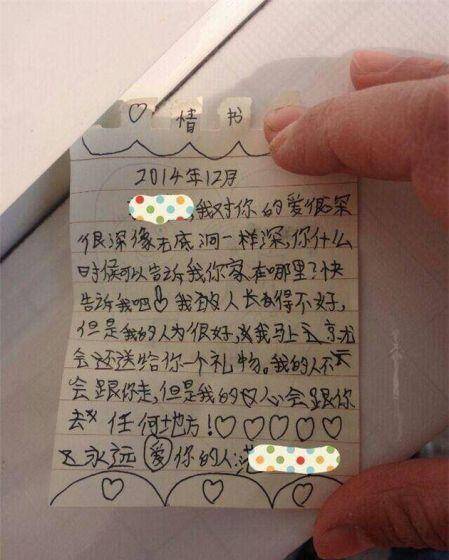 ♡ 情书
2014年12月
,我对你的爱很深
很深像无底洞一样深,你什么
时候可以告诉我你家在哪里?快
告诉我吧 我人长得不好,
但是我的人为很好,我马上
会送给你一个礼物。我的人不
会跟你走,但是我的心会跟你
去任何地方!♡♡♡♡♡
永远爱你的人:
♡ ♡ ♡